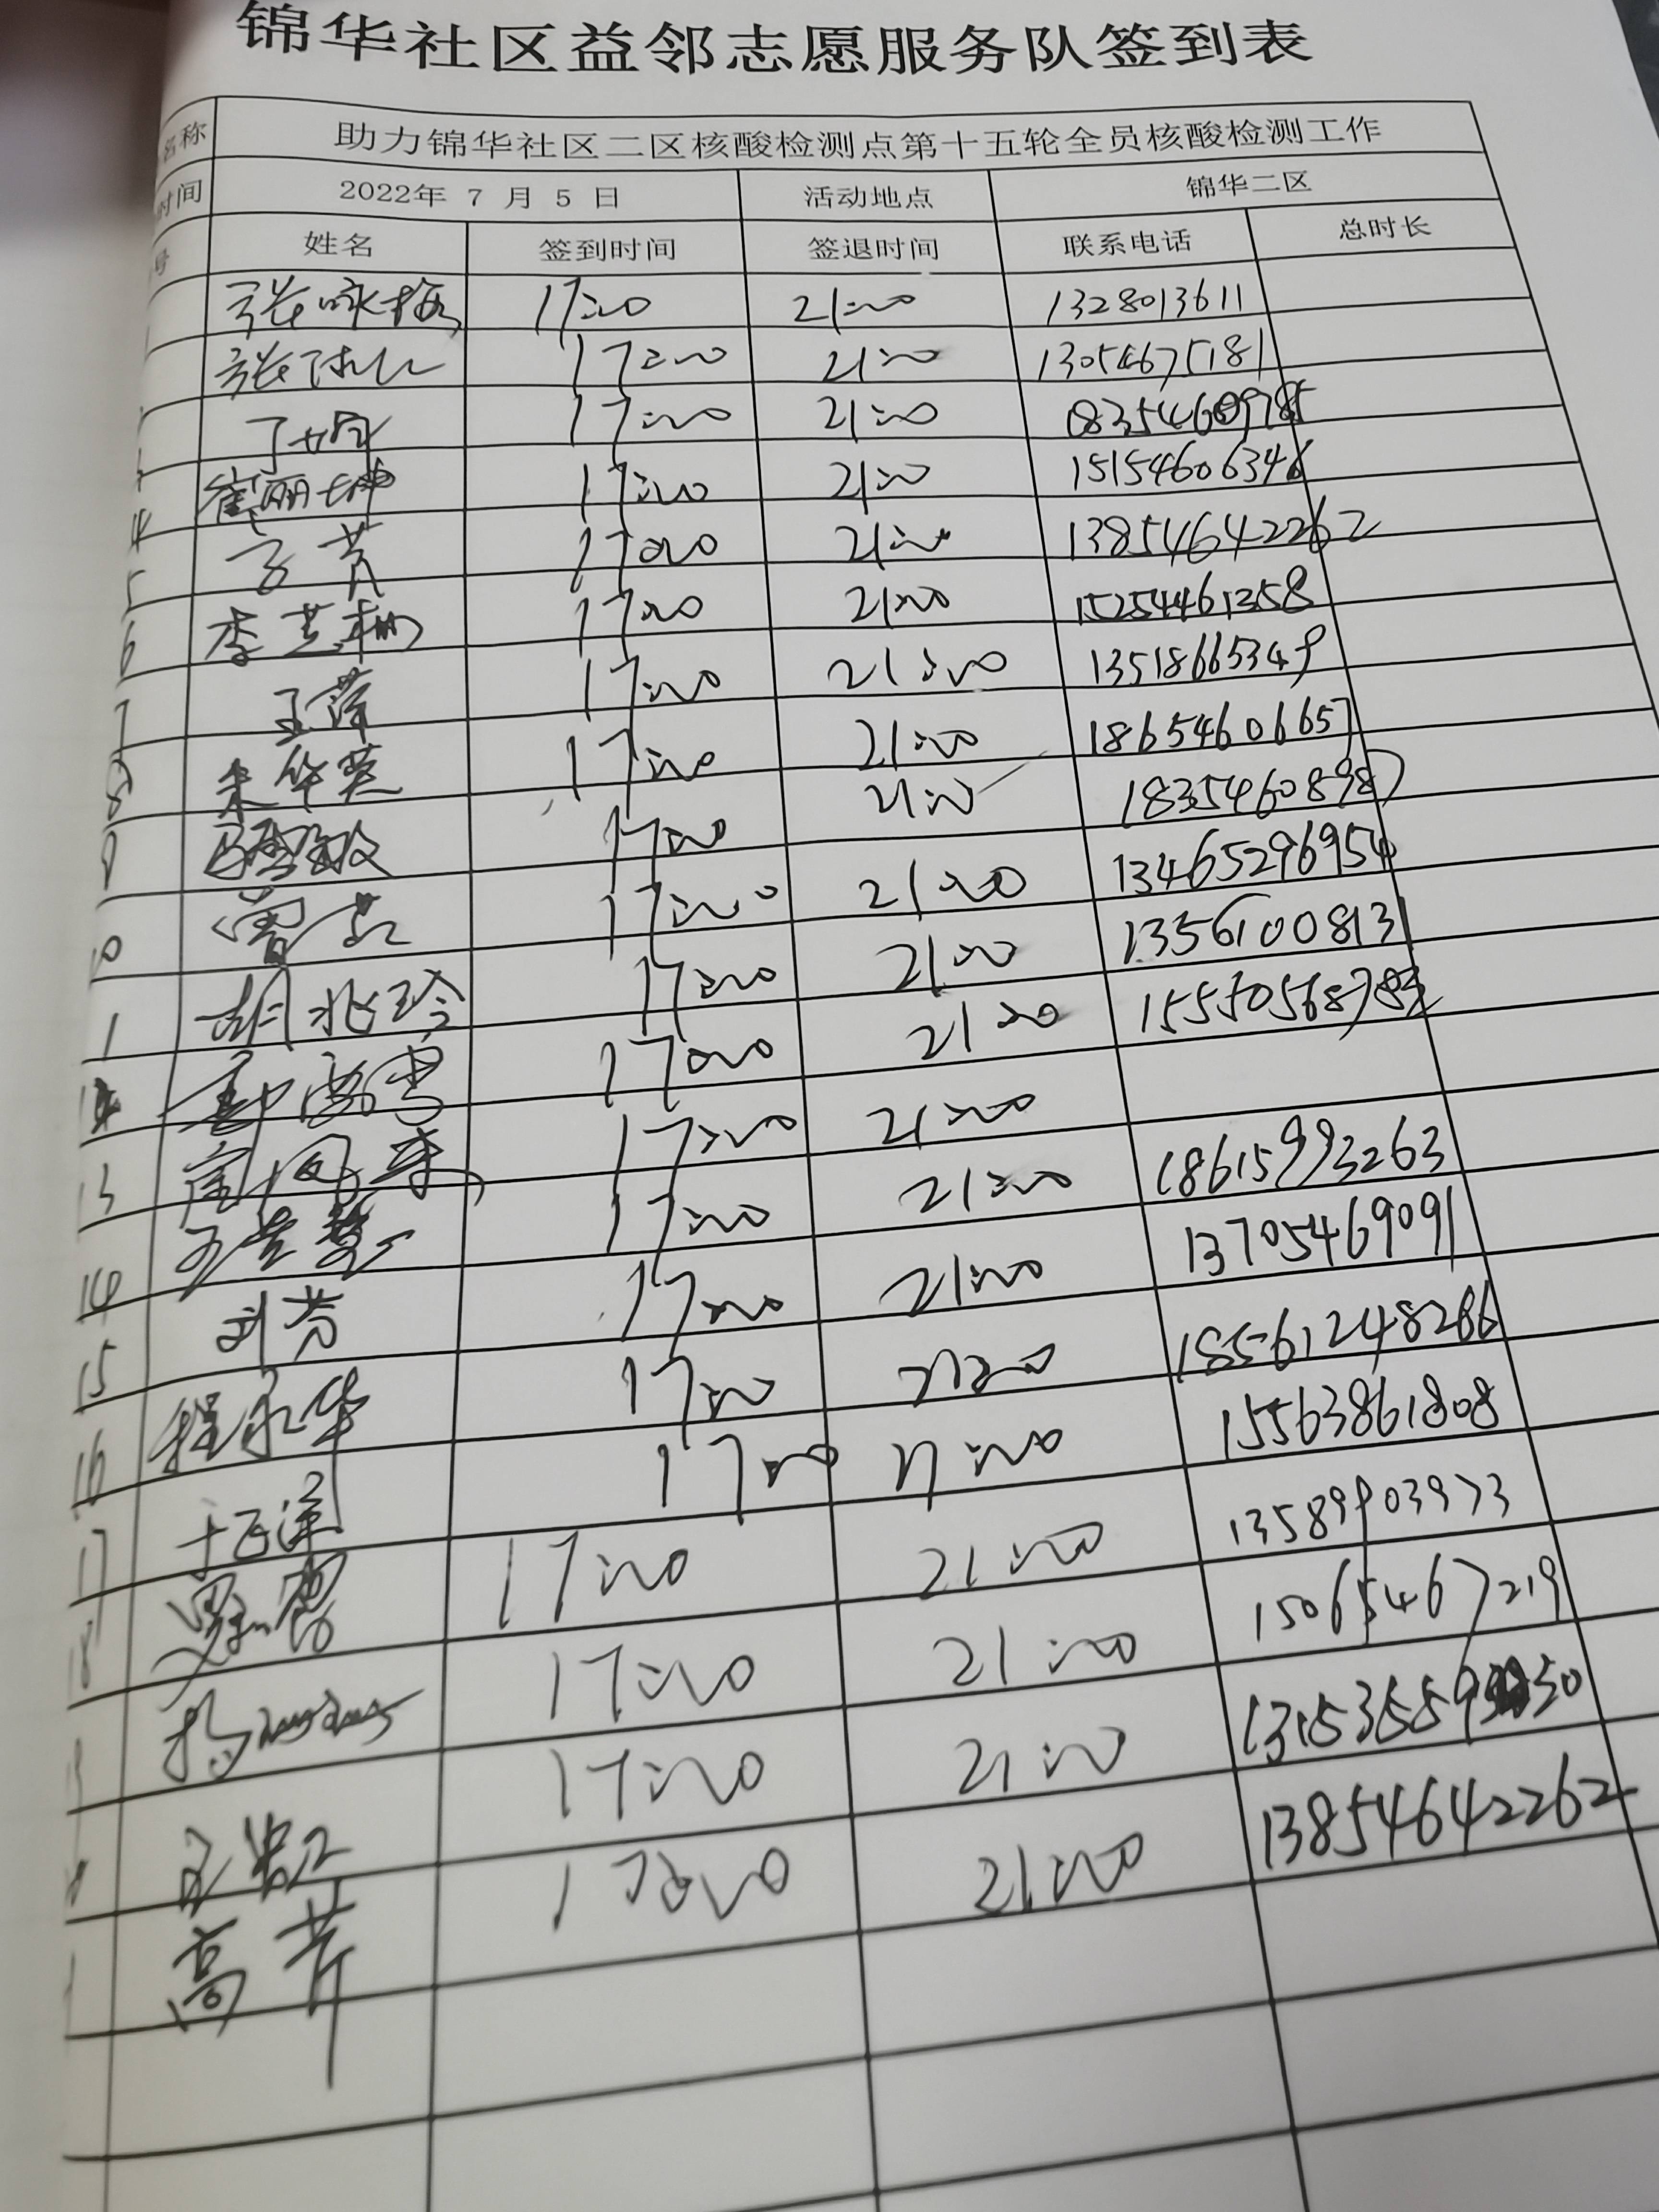 锦华社区益邻志愿服务队签到表
名称 助力锦华社区二区核酸检测点第十五轮全员核酸检测工作
时间 2022年 7 月 5 日 活动地点 锦华二区
号 姓名 签到时间 签退时间 联系电话 总时长
张咏梅 17:00 21:00 1328013611
17:00 21:00 13054675181
17:00 21:00
4 崔丽坤 17:00 21:00 15154606346
5 17:00 21:00 13854642262
6 李芝 17:00 21:00 15254461358
7 王萍 17:00 21:00 13518665349
8 朱华英 17:00 21:00 18654606657
9 17:00 21:00 18354608987
10 曹 17:00 21:00 13465296954
1 胡兆玲 17:00 21:00 13561008131
17:00 21:00 15550568783
13 17:00 21:00
14 17:00 21:00 18615993263
15 刘芳 17:00 21:00 13705469091
16 程永华 17:00 21:00 18561248286
17 于 17:00 21:00 15563861808
18 17:00 21:00 13589903973
杨 17:00 21:00 15065467219
17:00 21:00
高芹 17:00 21:00 13854642262